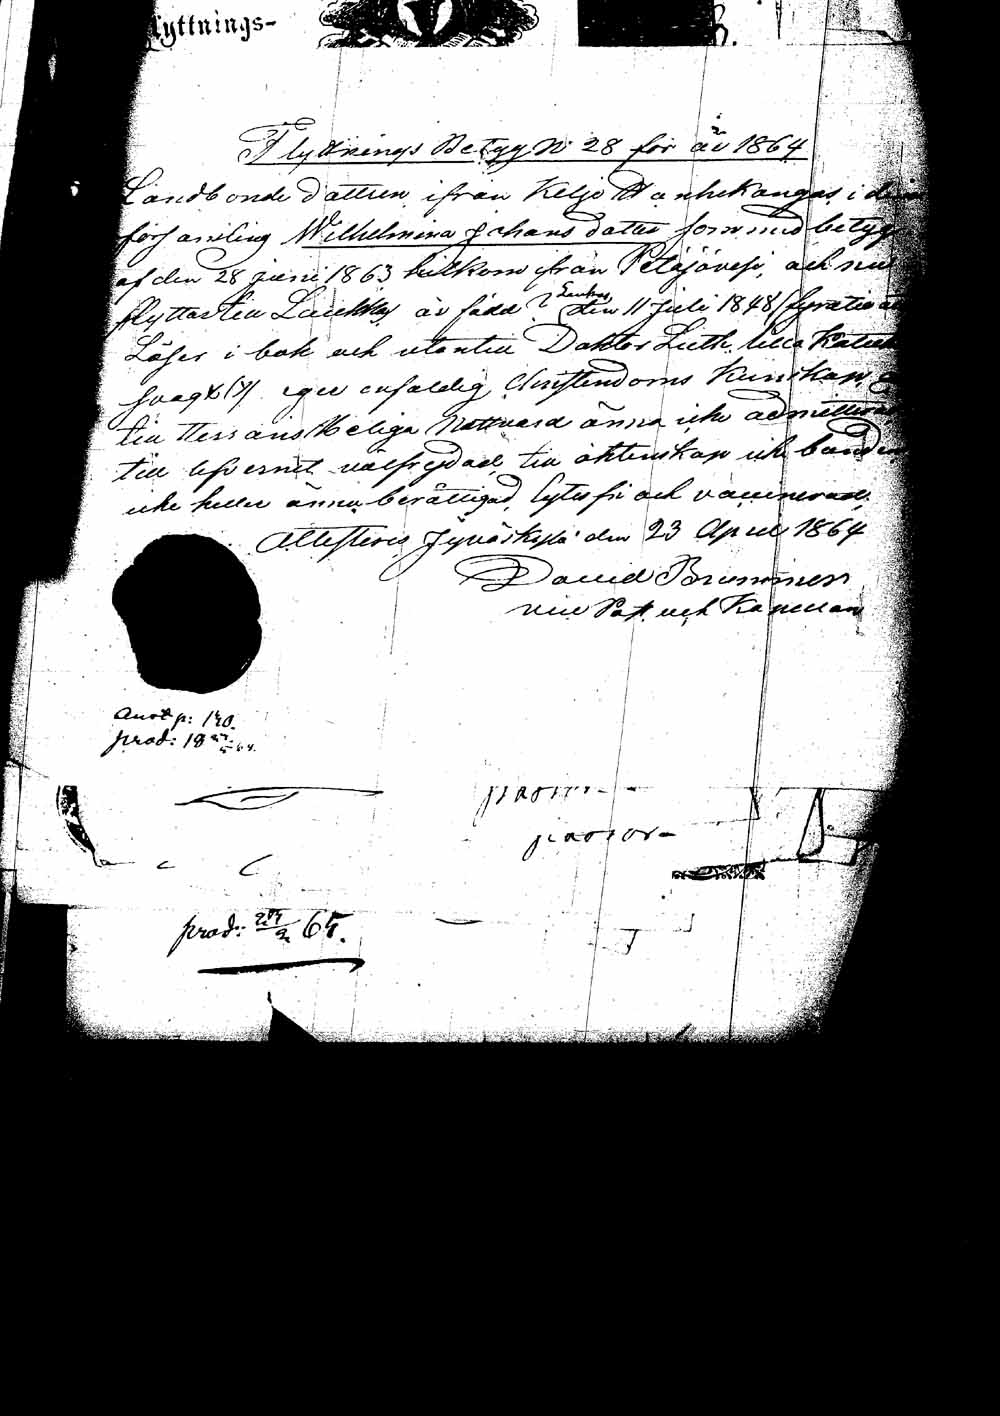 lyttnings-
Flyttnings Betyg No 28 för år 1864
Landbonde dottren ifrån Keljo Hanhekangas i denna
församling Wilhelmina Johans dotter som med betyg
af den 28 juni 1863 hitkom ifrån Petäjävesi, och nu
flyttar till Laukka är född i Laukas den 11 Juli 1848 (fyratio åt
Läser i bok och utantill Doktor Luth. lilla Katech
svagt (y) eger enfaldig Christendoms Kunskap,
till Herrans Heliga Nattvard ännu icke admitterad
till lefvernet välfrejdad, till äktenskap icke bunden
icke heller ännu berättigad, lytesfri och vaccinerad,
Attesteras Jyväskylä den 23 April 1864
David Brummer
vice Past. och Kapellan
Anot p: 140.
prod: 18
pastor-
pastor-
prod: 65.